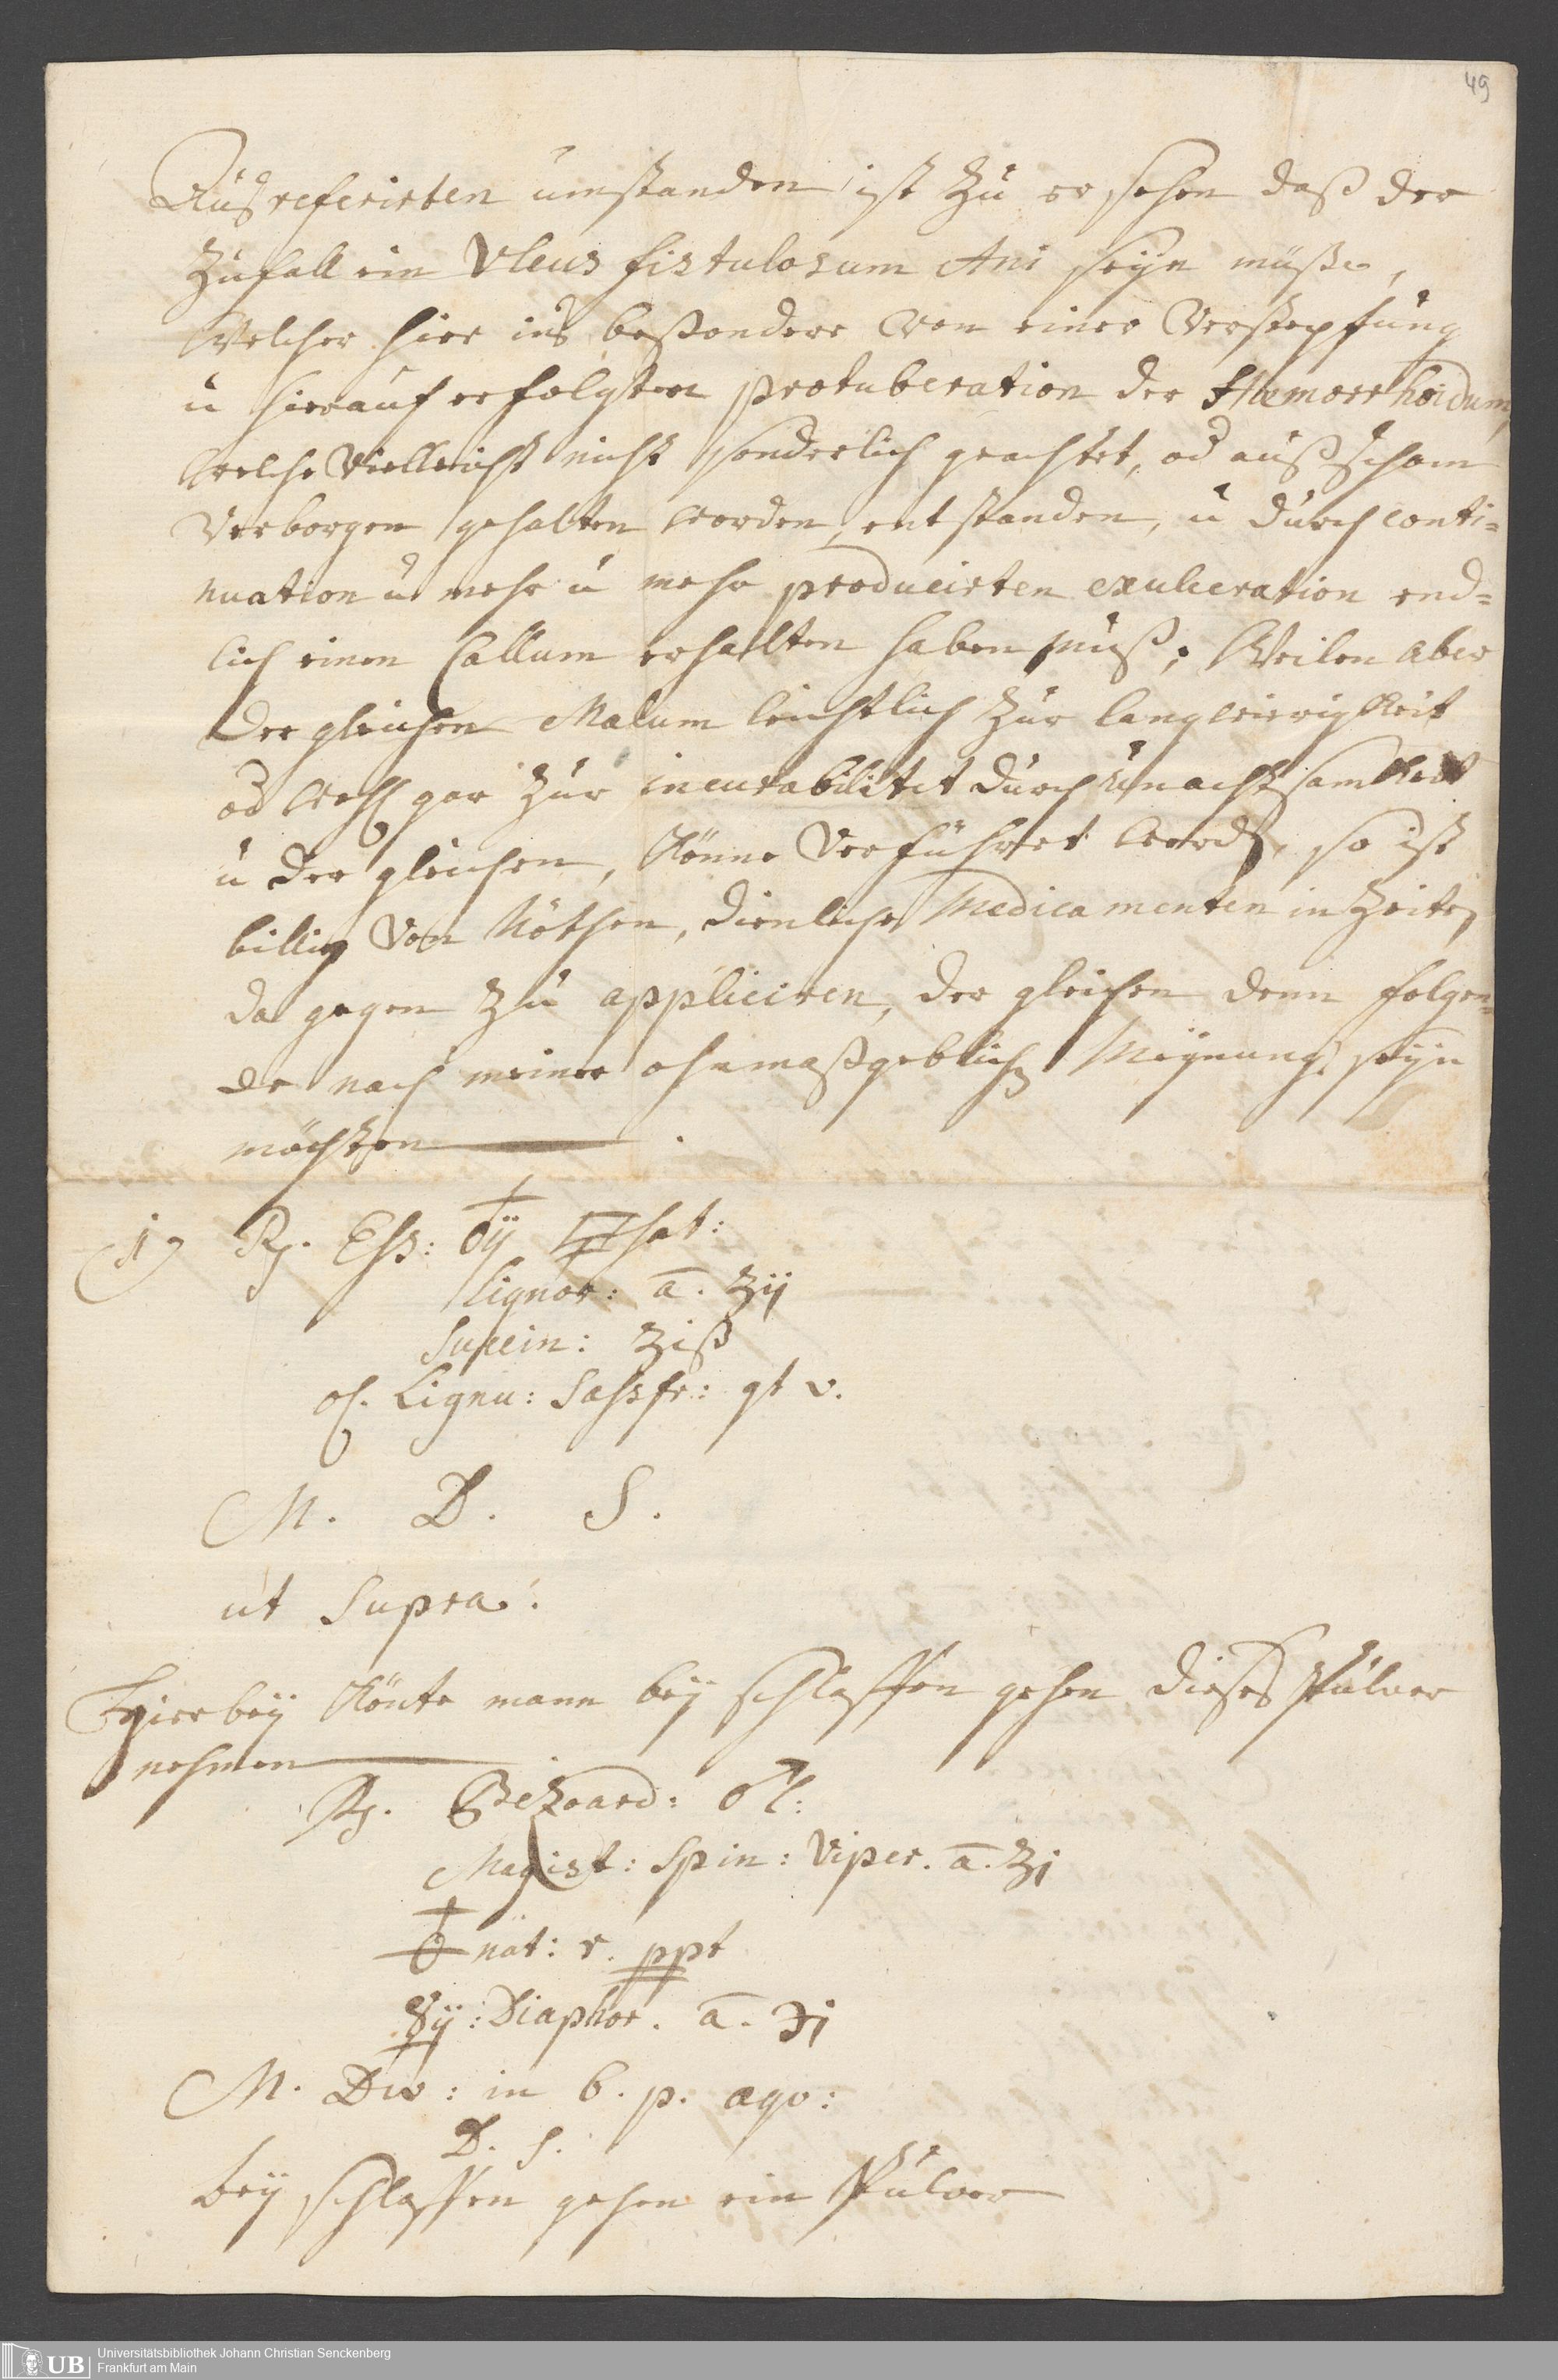 49
Auß referirten umstanden ist zu ersehen daß der
Zufall ein Ulcus fistulosum Ani seÿn müße,
Welcher hier ins beßondere von einer Verstopfung
u hierauf erfolgten protuberation der Hæmorrhoidum,
welche vielleicht nicht sonderlich geachtet, od auß scham
verborgen gehalten worden, entstanden, u durch conti=
nuation u mehr u mehr producirten exulceration end=
lich einen Callum erhalten haben muß; Weilen aber
dergleichen Malum leichtlich zur langwierigkeit
od wohl gar zur incurabilitet durch unachtsamkeit
u der gleichen, könne verführet werdn, so ist
billig von Nöthen, dienliche Medicamenten in Zeiten
da gegen zu appliciren, der gleichen denn folgen=
de nach meiner ohnmaßgeblichen Meÿnung seÿn
möchten.
1) Rp. Ess: ÿ sat:
Lignor: a. ʒij
Succin: ʒiß
ol. Lignu: Sassfr: gt v.
M. D. S.
ut Supra.
Hierbeÿ könte mann beÿ schlaffen gehen dieses Pulver
nehmen
Rp. Bezoard: ♂l:
Magist: Spin: Viper. a. ʒj
nat: r. ppt
ÿ: Diaphor. a. ℈j
M. Div: in 6. p. aqv:
D. S.
beÿ schlaffen gehen ein Pulver
UB Universitätsbibliothek Johann Christian Senckenberg
Frankfurt am Main